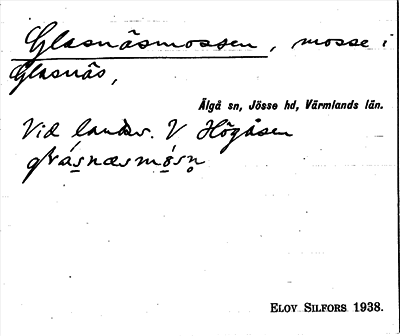 Glasnäsmossen, mosse i
Glasnäs,
Älgå sn, Jösse hd, Värmlands län.
Vid landsv. V Högåsen
ELOV SILFORS 1938.